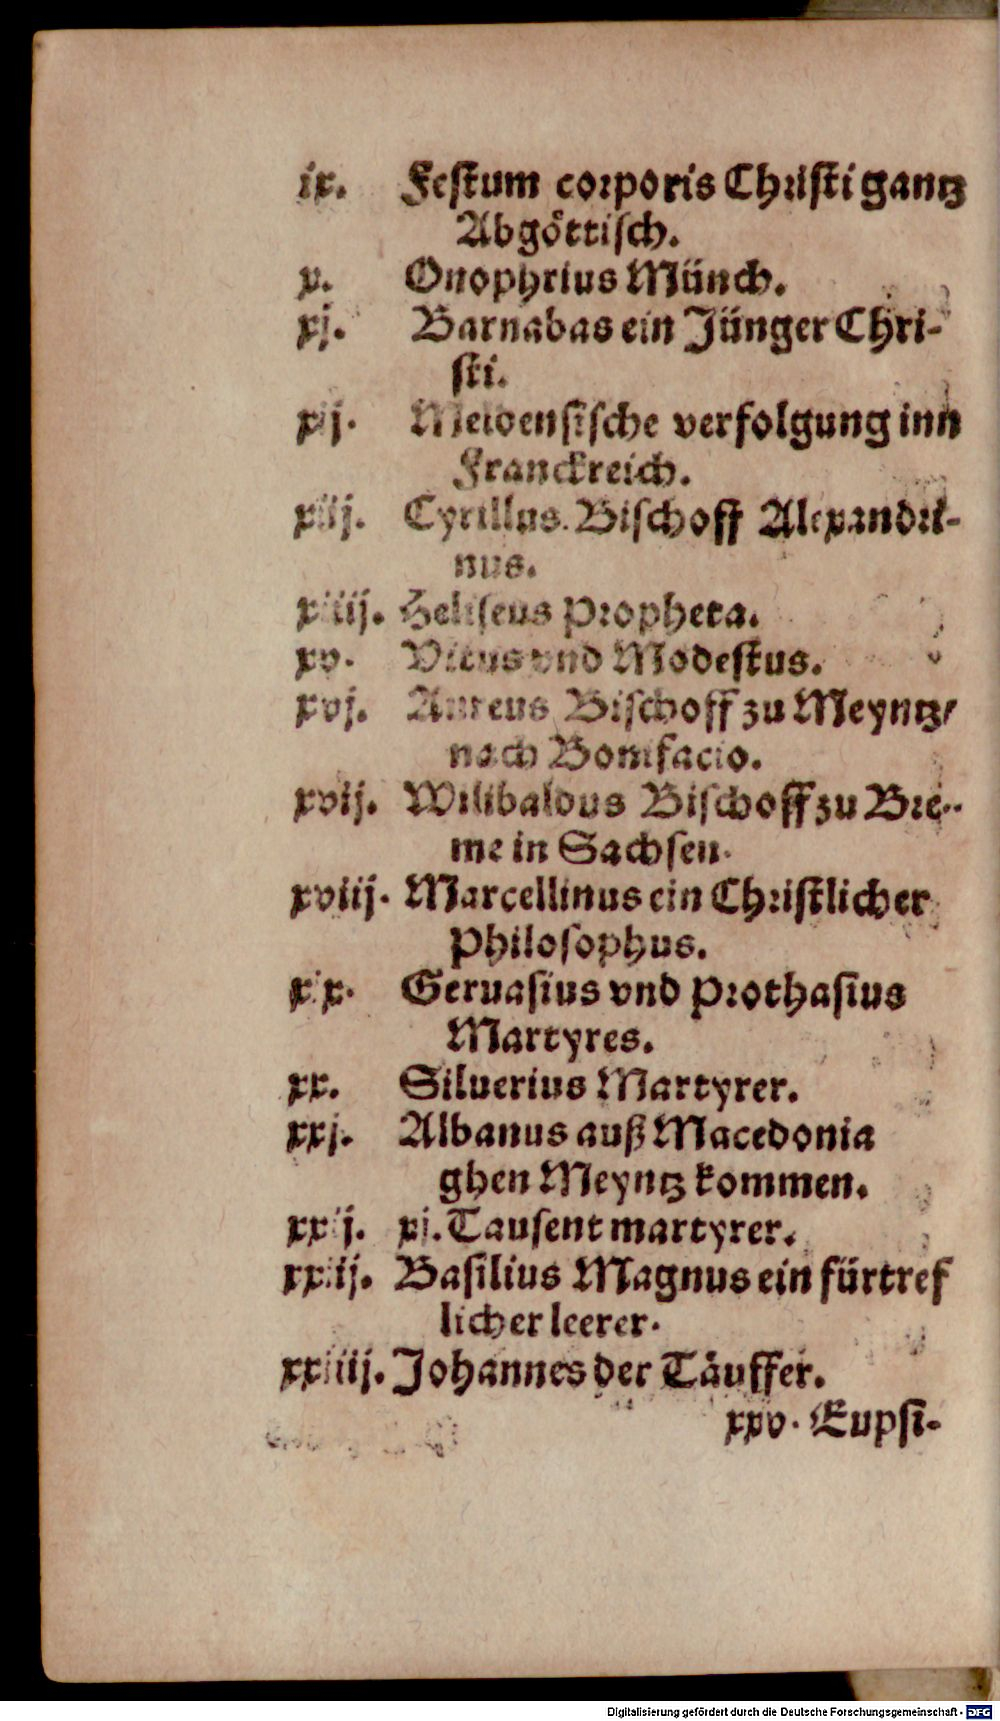 ix. Festum corporis Christi gantz
Abgöttisch.
x. Onophrius Münch.
xj. Barnabas ein Jünger Chri-
sti.
xij. verfolgung inn
Franckreich.
xiij. Cyrillus Bischoff Alexandri-
nus.
xiiij. Heliseus Propheta.
xv. Vitus vnd Modestus.
xvj. Aureus Bischoff zu Meyntz/
nach Bonifacio.
xvij. Wilibaldus Bischoff zu Bre-
me in Sachsen.
xviij. Marcellinus ein Christlicher
Philosophus.
xix. Geruasius vnd Prothasius
Martyres.
xx. Siluerius Martyrer.
xxj. Albanus auß Macedonia
ghen Meyntz kommen.
xxij. xj. Tausent martyrer.
xxiij. Basilius Magnus ein fürtref
licher leerer.
xxiiij. Johannes der Täuffer.
xxv. Eupsi-
Digitalisierung gefördert durch die Deutsche Forschungsgemeinschaft - DFG